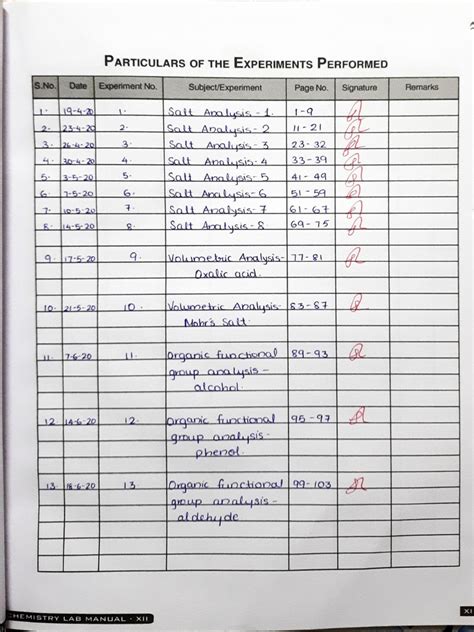 PARTICULARS OF THE EXPERIMENTS PERFORMED
S.No. Date Experiment No. Subject/Experiment Page No. Signature Remarks
1. 19-4-20 1. Salt Analysis - 1. 1-9
2. 23-4-20 2. Salt Analysis - 2 11-21
3. 26-4-20 3. Salt Analysis - 3 23-32
4. 30-4-20 4. Salt Analysis - 4 33-39
5. 3-5-20 5. Salt Analysis - 5 41-49
6. 7-5-20 6. Salt Analysis - 6 51-59
7. 10-5-20 7. Salt Analysis - 7 61-67
8. 14-5-20 8. Salt Analysis - 8. 69-75
9. 17-5-20 9. Volumetric Analysis- 77-81
Oxalic acid.
10. 21-5-20 10. Volumetric Analysis- 83-87
Mohr's Salt.
11. 7-6-20 11. Organic functional 89-93
group analysis -
alcohol.
12 14-6-20 12. Organic functional 95-97
group analysis-
phenol.
13. 18-6-20 13. Organic functional 99-103
group analysis-
aldehyde.
CHEMISTRY LAB MANUAL - XII
XI